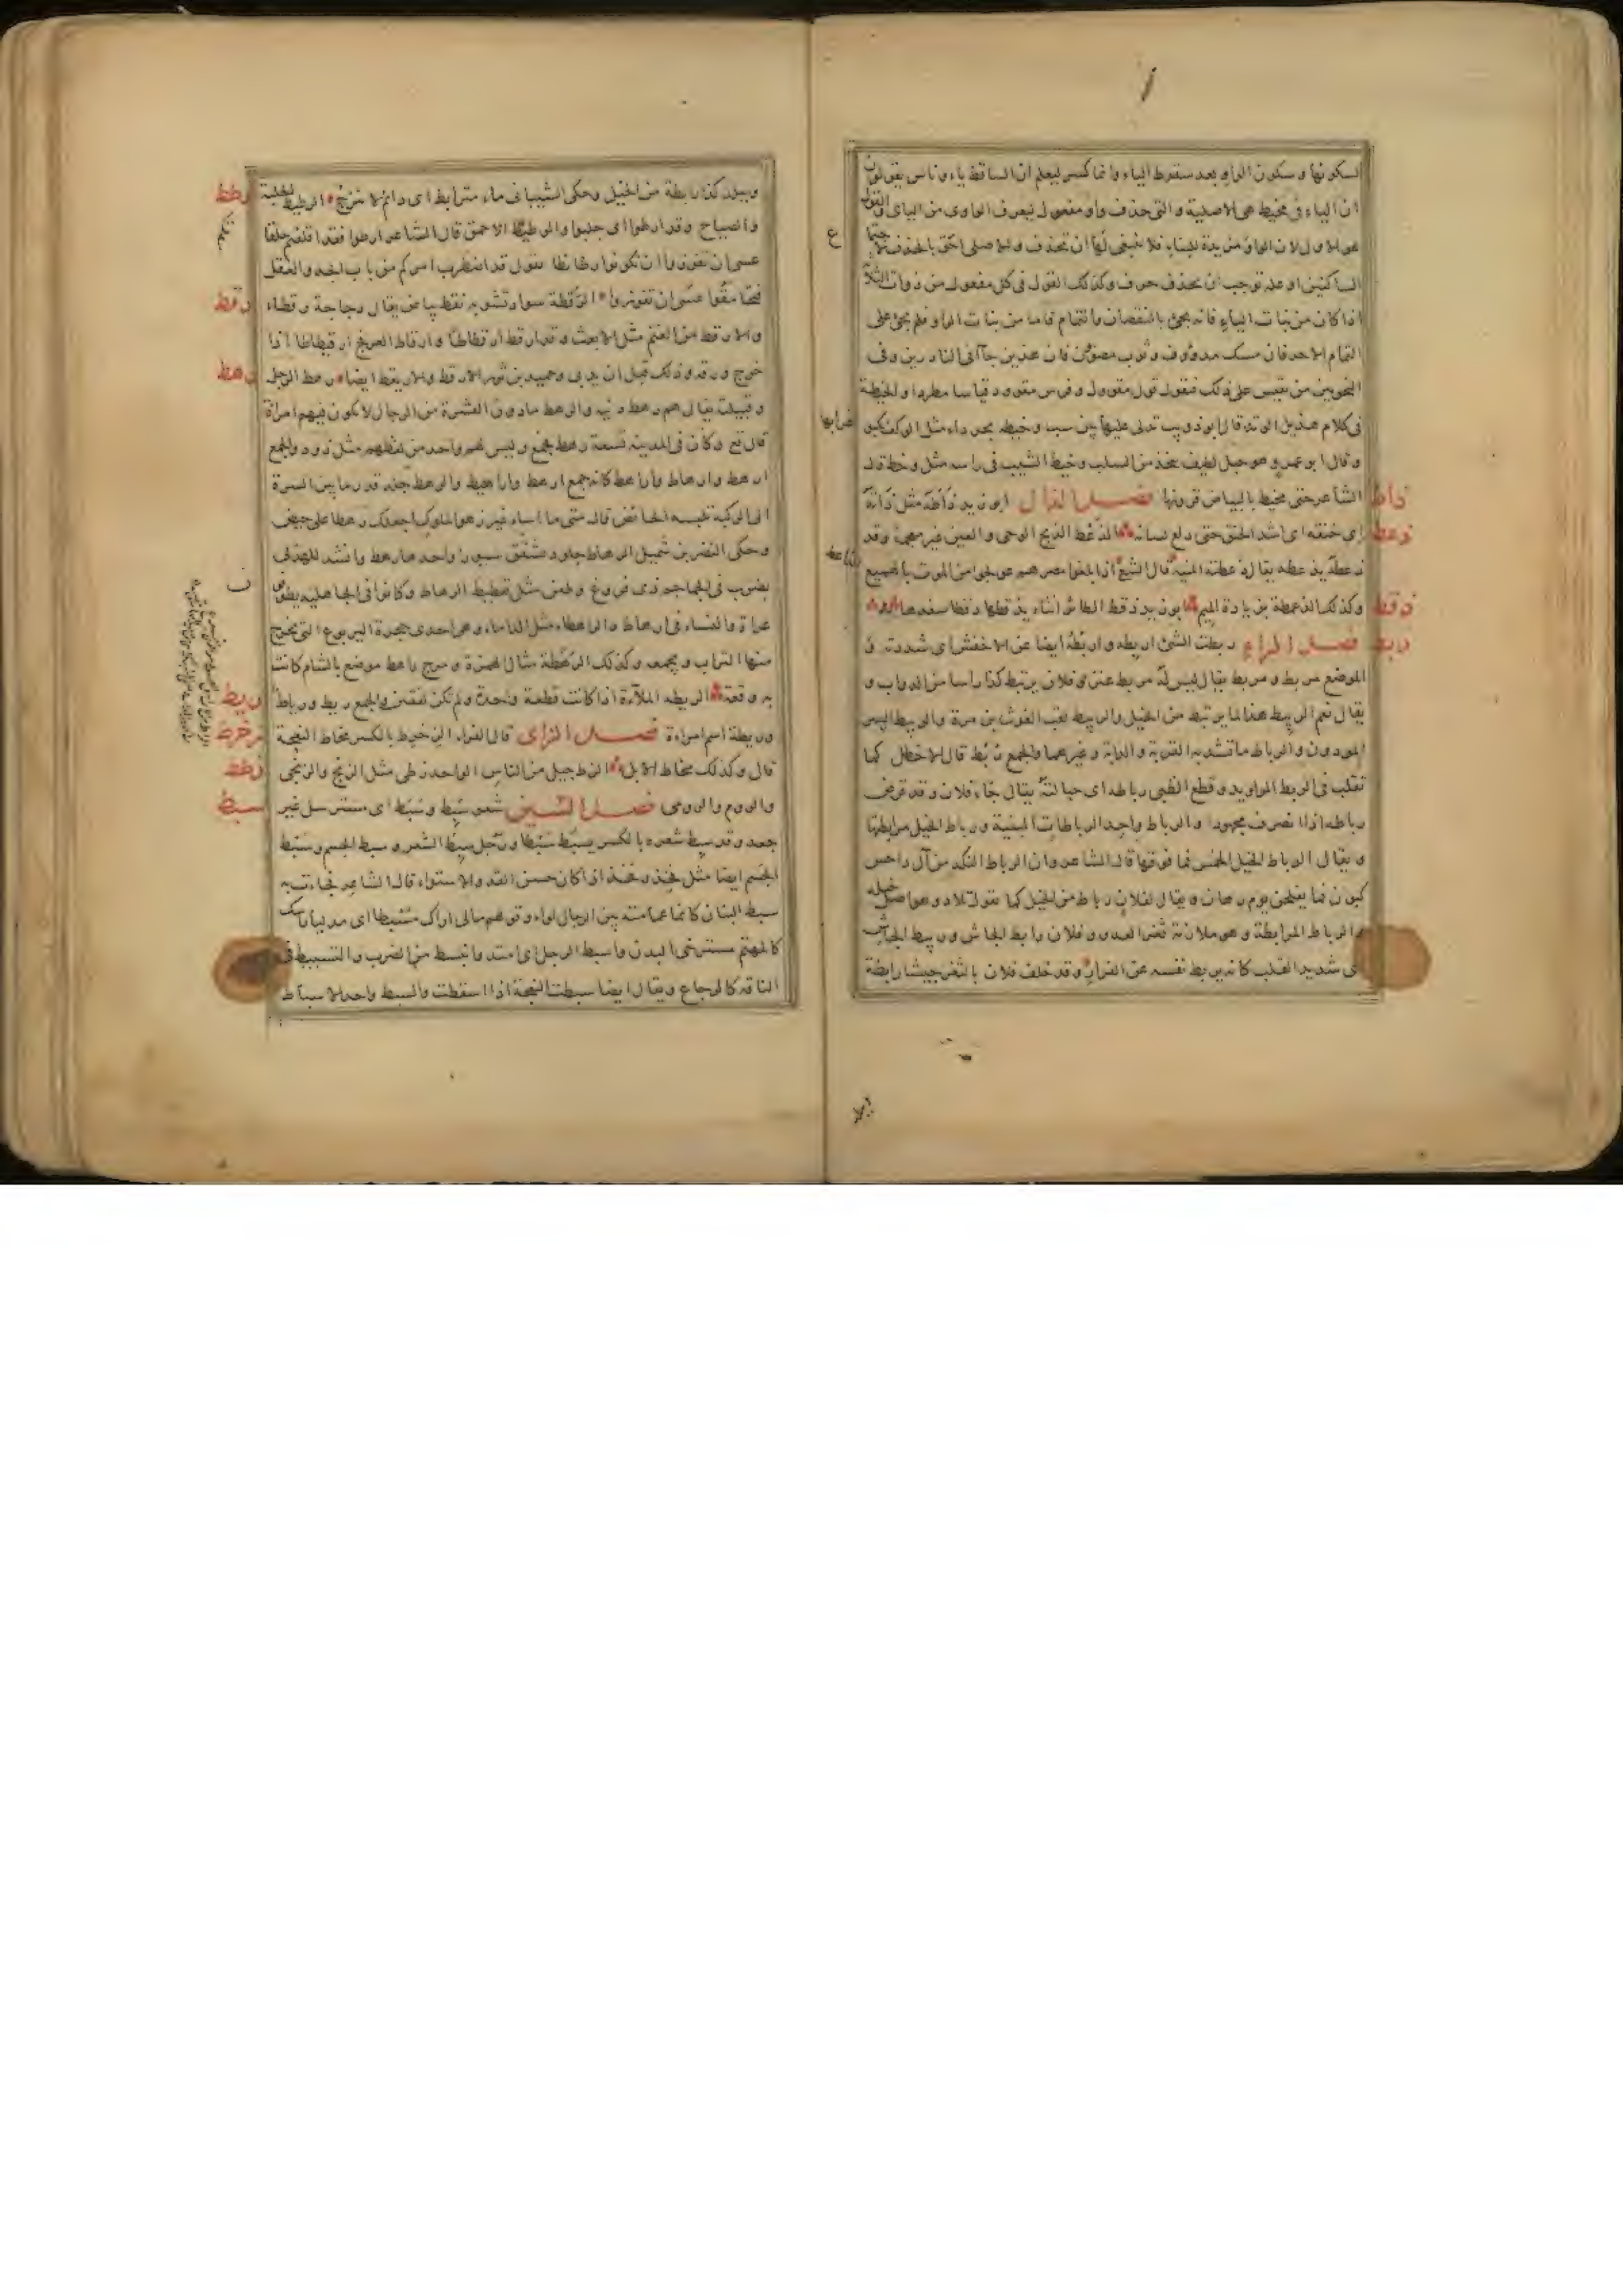 لسكونها وسكون الواو بعد سقوط الياء وانما كسر ليعلم ان الساقط ياء وناس يقولون
ان الياء فى مخيط هى الاصلية والتى حذف واو مفعول ليعرف الواوى من اليائى والقول
هو الاول لان الواو مزيدة للبناء فلا ينبغى لها ان تحذف والاصلى احق بالحذف لاجتماع
الساكنين او علة توجب ان يحذف حرف وكذلك القول فى كل مفعول من ذوات الثلاثة
اذا كان من بنات الياء فانه يجئ بالنقصان والتمام فاما من بنات الواو فلم يجئ على
التمام الا حرفان مسك مدووف وثوب مصوون فان هذين جاآ نادرين وفى
النحويين من يقيس على ذلك فيقول قول مقوول وفرس مقوود قياسا مطردا والخيطة
فى كلام هذيل الوتد قال ابو ذويب تدلى عليها بين سب وخيطة بجرداء مثل الوكف يكبو
غرابها
وقال ابو عمرو هو حبل لطيف يتخذ من السلب وخيط الشيب فى راسه مثل وخط قال
الشاعر حتى تخيط بالبياض قرونها فصل الذال ابو زيد ذأطه مثل ذأته
ذأط
اى خنقه اى اشد الخنق حتى دلع لسانه الذعط الذبح الوحى والعين غير معجمة وقد
ذعط
ذعطه يذعطه يقال ذعطته المنية قال الشاعر اذا بلغوا مصرهم عوجلوا من الموت بالهميع
الذاعط
وكذلك الذعمطة بزيادة الميم ابو زيد ذقط الطائر انثاه يذقطها ذقطا سفدها
ذقط
فصل الراء ربطت الشئ اربطه واربطه ايضا عن الاخفش اى شددته و
ربط
الموضع مربط ومربط يقال ليس له مربط عنز وفلان يرتبط كذا راسا من الدواب و
يقال نعم الربيط هذا لما يرتبط من الخيل والربيط لقب الغوث بن مرة والربيط البسر
المودون والرباط ما تشد به القربة والدابة وغيرهما والجمع ربط قال الاخطل كما
تقلب فى الربط المراويد وقطع الظبى رباطه اى حبالته يقال جاء فلان وقد قرض
رباطه اذا انصرف مجهودا والرباط واحد الرباطات المبنية ورباط الخيل مرابطتها
ويقال الرباط الخيل الخمس فما فوقها قال الشاعر وان الرباط النكد من آل داحس
كبون فما يفلحن يوم رهان ويقال لفلان رباط من الخيل كما تقول تلاد وهو اصل خيله
والرباط المرابطة وهو ملازمة ثغر العدو وفلان رابط الجاش وربيط الجاش
اى شديد القلب كانه يربط نفسه عن الفرار وقد خلف فلان بالثغر جيشا رابطة
وببلد كذا رابطة من الخيل وحكى الشيبانى ماء مترابط اى دائم لا ينزح الرطيط الجلبة
رطط
والصياح وقد ارطوا اى جلبوا والرطيط الاحمق قال الشاعر ارطوا فقد اقلقتم حلقاتكم
عسى ان تفوزوا ان تكونوا رطائطا يقول قد اضطرب امركم من باب الجد والعقل
فتحامقوا عسى ان تفوزوا الرقطة سواد تشوبه نقط بياض يقال دجاجة رقطاء
رقط
والارقط من الغنم مثل الابغث وقد ارقط ارقطاطا وارقاط العرفج ارقيطاطا اذا
خرج ورقه وذلك قبل ان يدبى وحميد بن ثور الارقط والاريقط ايضا رهط الرجل
رهط
وقبيلته يقال هم رهط دنية والرهط ما دون العشرة من الرجال لا يكون فيهم امراة
قال تع وكان فى المدينة تسعة رهط فجمع وليس لهم واحد من لفظهم مثل ذود والجمع
ارهط وارهاط واراهط كانه جمع ارهط واراهيط والرهط جلد قدر ما بين السرة
الى الركبة تلبسه الحائض قال متى ما اشاء غير زهو الملوك اجعلك رهطا على حيض
وحكى النضر بن شميل الرهاط جلود تشقق سيورا واحدها رهط وانشد للهذلى
بضرب فى الجماجم ذى فروغ وطعن مثل تعطيط الرهاط وكانوا فى الجاهلية يطوفون
عراة والنساء فى ارهاط والراهطاء مثل الداماء وهى احدى جحرة اليربوع التى يخرج
منها التراب ويجمعه وكذلك الرهطة مثال الهمزة ومرج راهط موضع بالشام كانت
به وقعة الريطة الملاءة اذا كانت قطعة واحدة ولم تكن لفقين والجمع ريط ورياط
ريط
وريطة اسم امراءة فصل الزاى قال الفراء الزخرط بالكسر مخاط النعجة
زخرط
قال وكذلك مخاط الابل الزط جيل من الناس الواحد زطى مثل الزنج والزنجى
زطط
والروم والرومى فصل السين شعر سبط وسبط اى مسترسل غير
سبط
جعد وقد سبط شعره بالكسر يسبط سبطا ورجل سبط الشعر وسبط الجسم وسبط
الجسم ايضا مثل فخذ وفخذ اذا كان حسن القد والاستواء قال الشاعر فجاءت به
سبط البنان كانما عمامته بين الرجال لواء وقولهم مالى اراك مسبطا اى مدليا راسك
كالمهتم مسترخى البدن واسبط الرجل اى امتد وانبسط من الضرب والتسبيط فى
الناقة كالرجاع ويقال ايضا سبطت النعجة اذا اسقطت والسبط واحد الاسباط